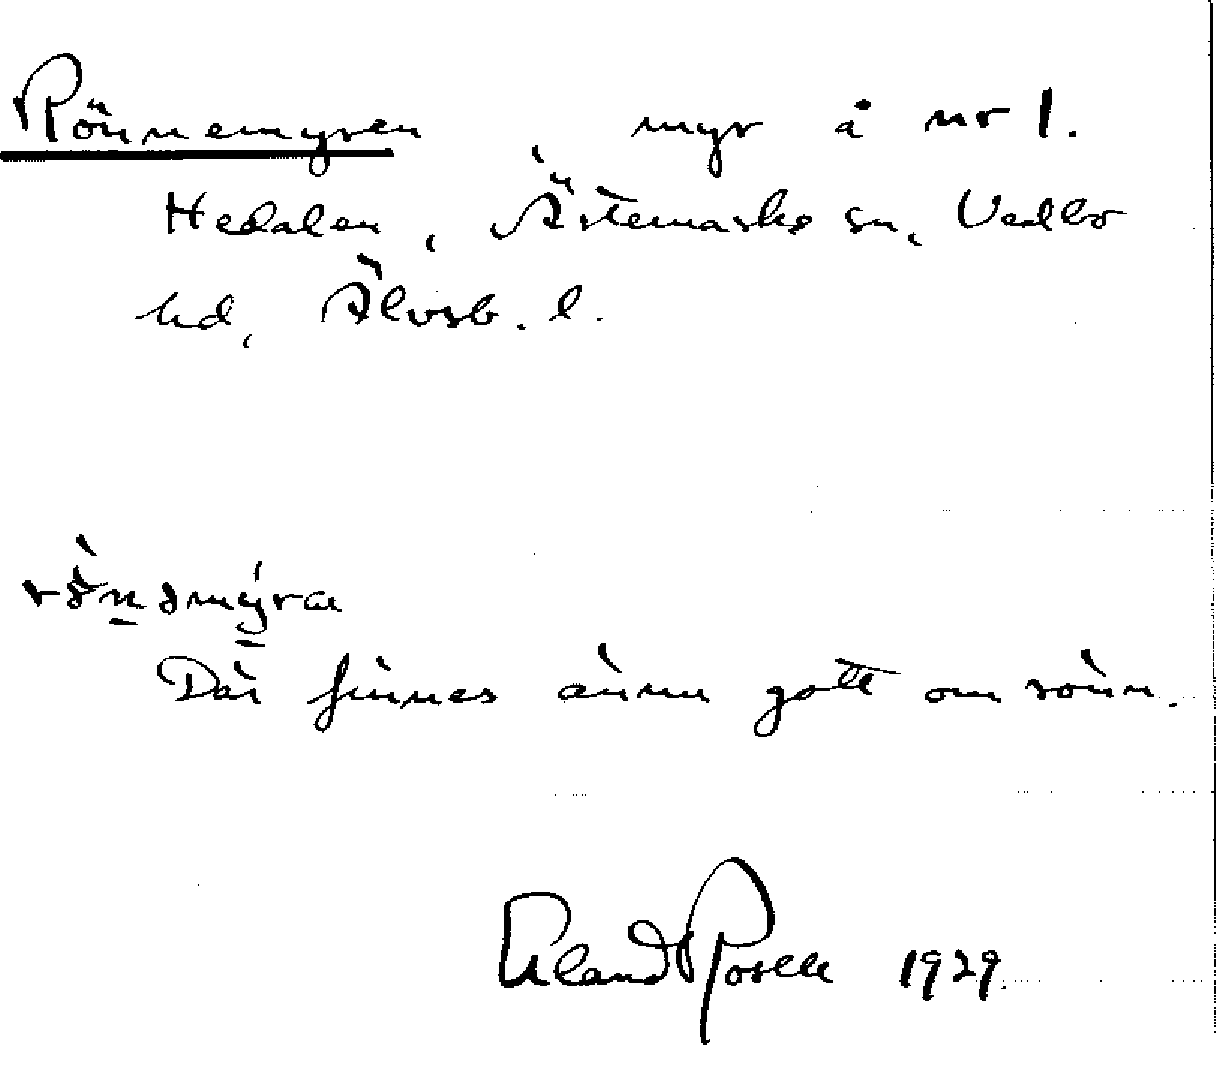 Rönnemyren myr å nr 1.
Hedalen, Ärtemarks sn, Vedbo
hd, Älvsb. l.
Där finnes ännu gott om rönn.
Erland Rosell 1929.